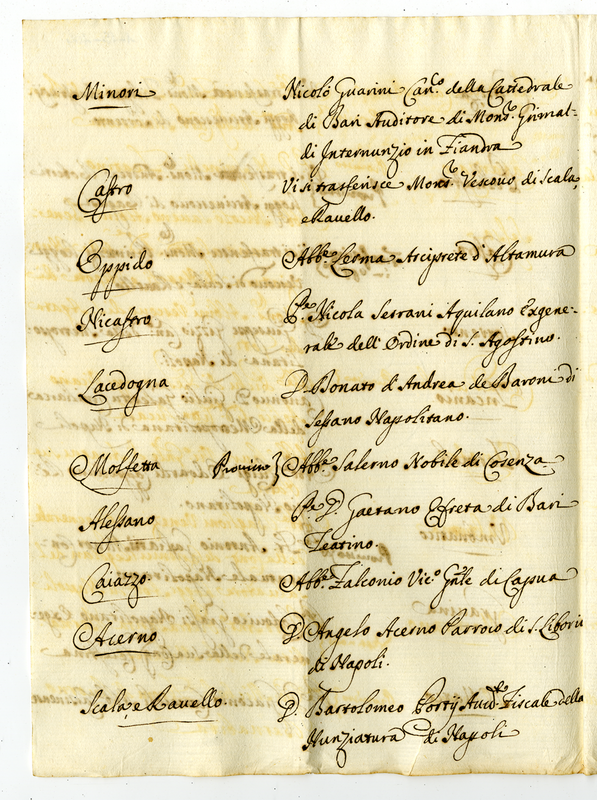 Minori Nicolò Guarini Can.co della Cattedrale
di Bari Auditore di Mons.r Grimal-
di Internunzio in Fiandra
Castro Vi si trasferisce Mons.r Vescovo di Scala,
e Ravello.
Oppido Abb.e Lerma Arciprete d'Altamura
Nicastro P.re Nicola Serrani Aquilano Exgene-
rale dell'Ordine di S. Agostino.
Lacedogna D. Donato d'Andrea de Baroni di
Sessano Napolitano.
Molfetta Abb.e Salerno Nobile di Cosenza
Alessano P.re D. Gaetano Efreta di Bari
Teatino.
Caiazzo. Abb.e Falconio Vic.o Gnle di Capua
Acerno D. Angelo Acerno Parroco di S. Liborio
di Napoli.
Scala, e Ravello D. Bartolomeo Portij Aud.re Fiscale della
Nunziatura di Napoli